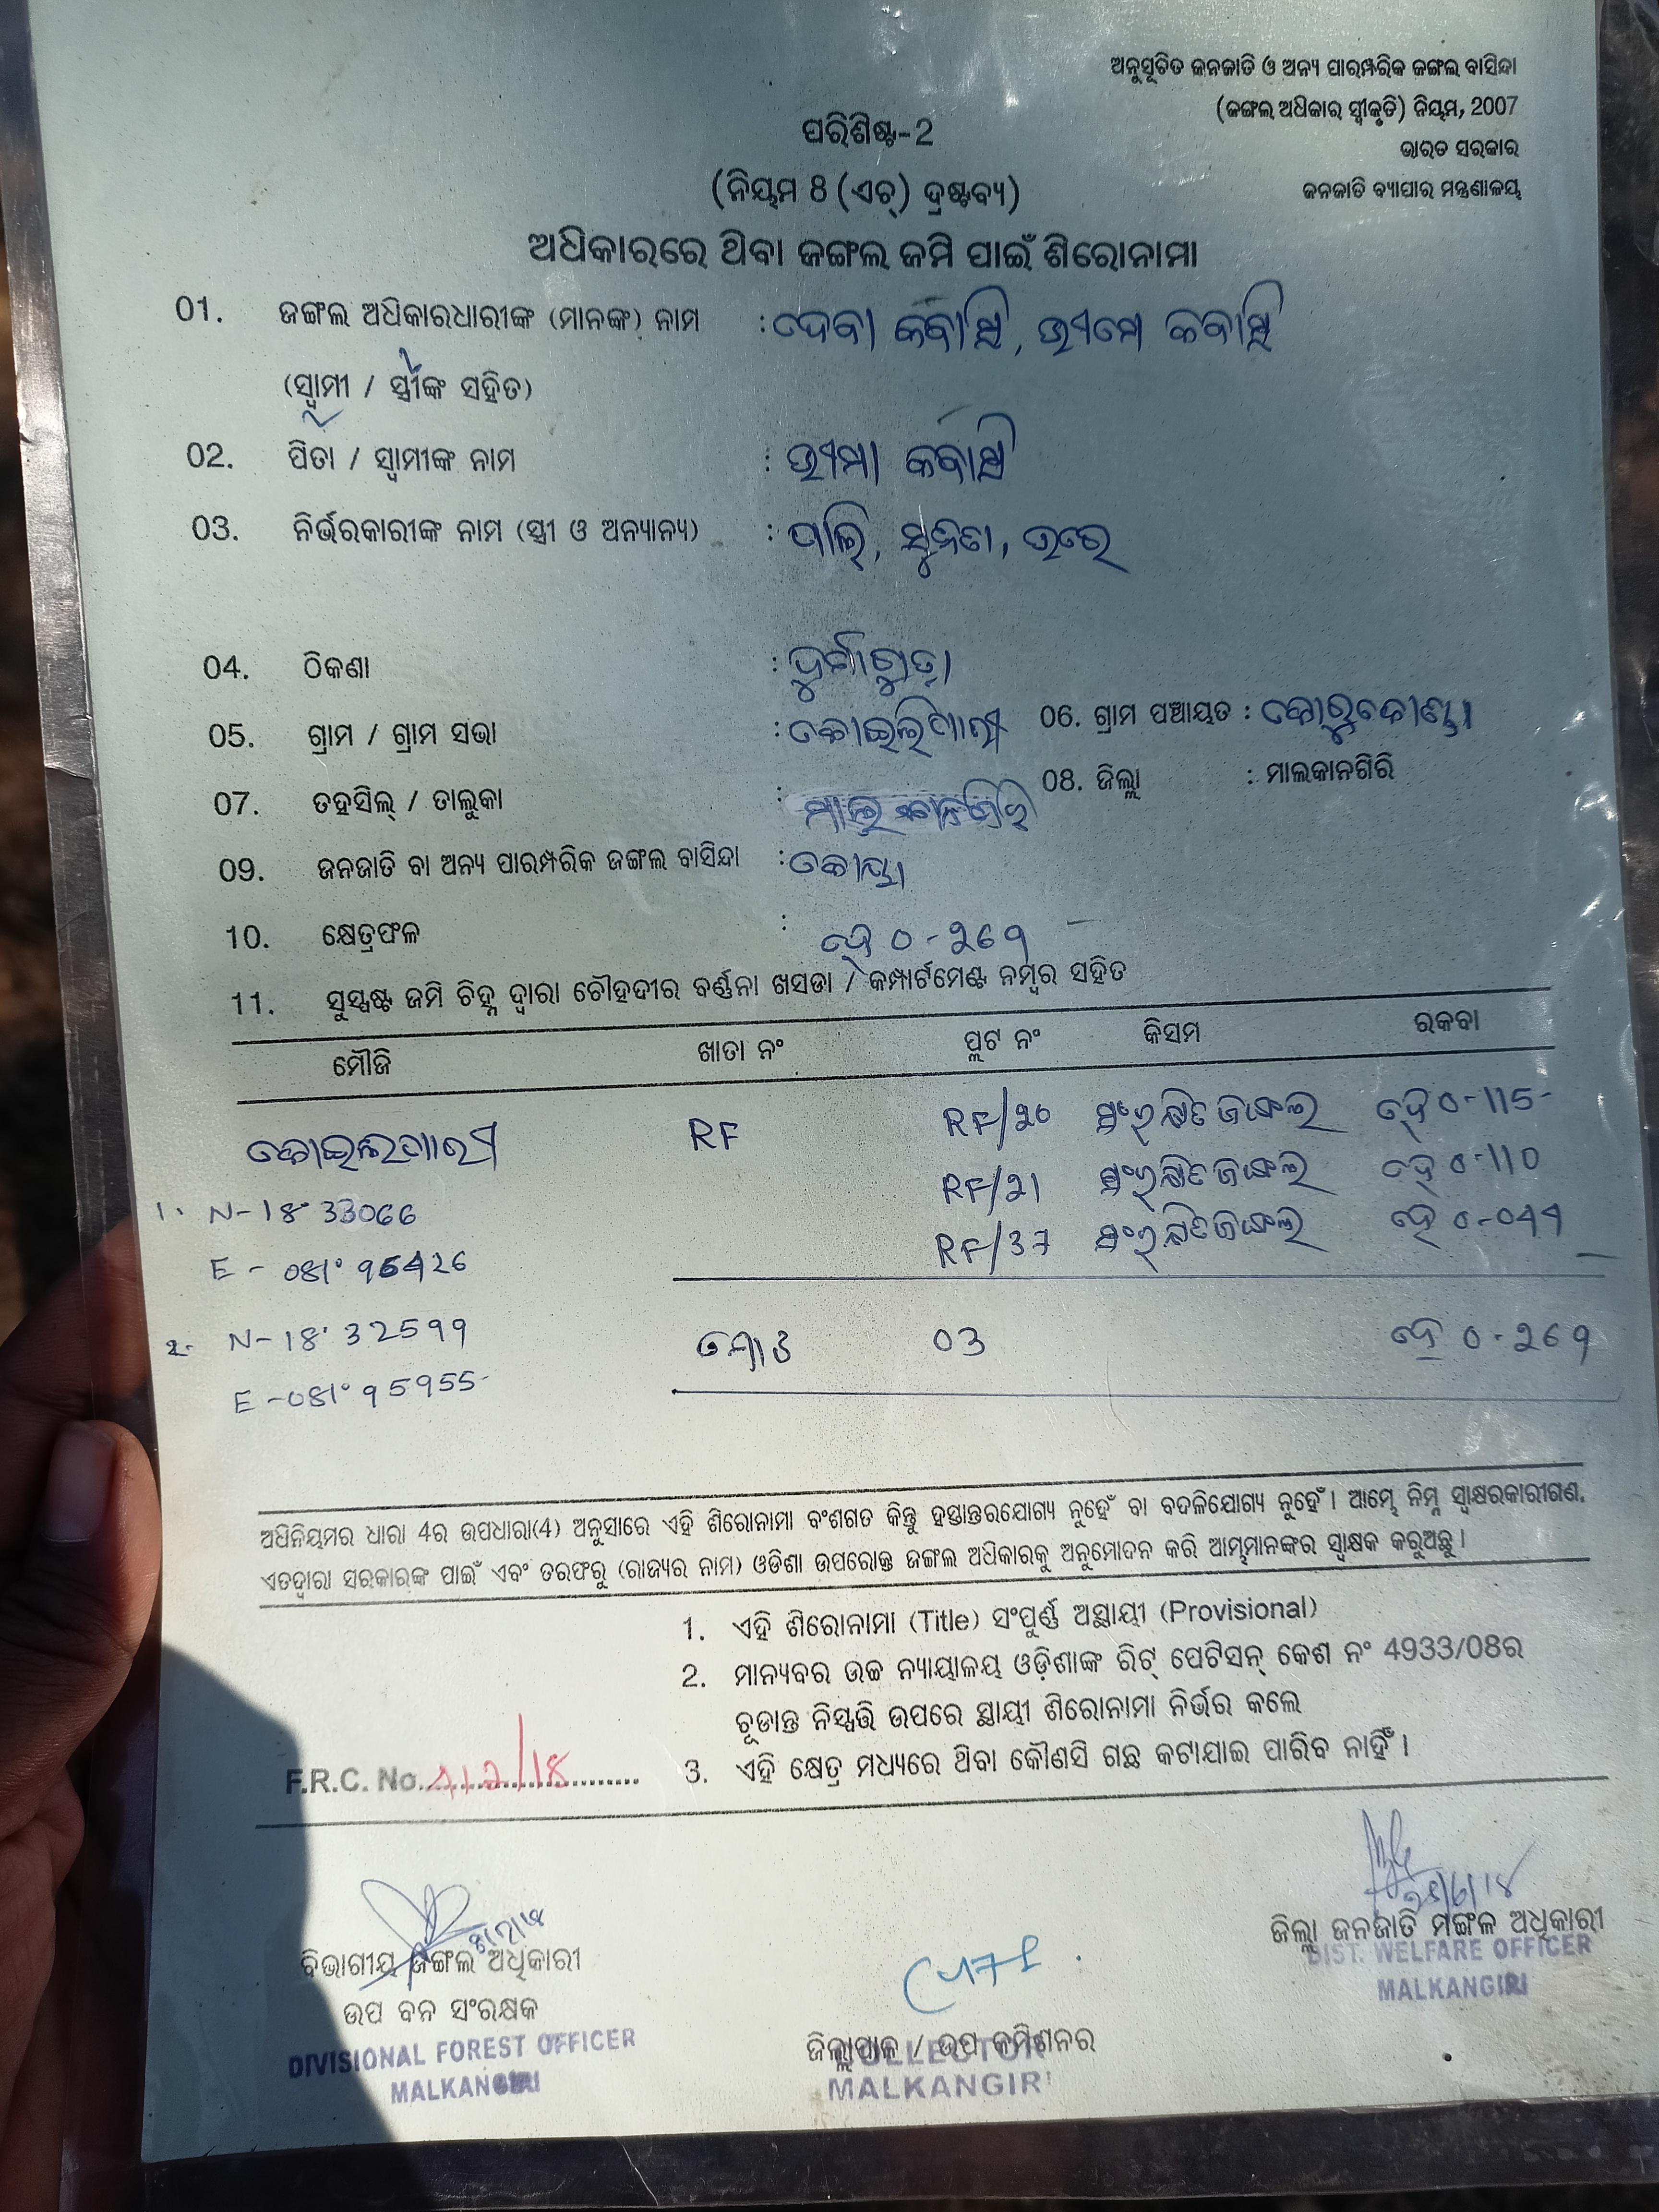 ଅନୁସୂଚିତ ଜନଜାତି ଓ ଅନ୍ୟ ପାରମ୍ପରିକ ଜଙ୍ଗଲ ବାସିନ୍ଦା
(ଜଙ୍ଗଲ ଅଧିକାର ସ୍ୱୀକୃତି) ନିୟମ, 2007
ଭାରତ ସରକାର
ଜନଜାତି ବ୍ୟାପାର ମନ୍ତ୍ରଣାଳୟ
ପରିଶିଷ୍ଟ-2
(ନିୟମ 8 (ଏଚ୍) ଦ୍ରଷ୍ଟବ୍ୟ)
ଅଧିକାରରେ ଥିବା ଜଙ୍ଗଲ ଜମି ପାଇଁ ଶିରୋନାମା
01. ଜଙ୍ଗଲ ଅଧିକାରଧାରୀଙ୍କ (ମାନଙ୍କ) ନାମ : ଦେବା କବାସି, ଭୀମେ କବାସି
(ସ୍ୱାମୀ / ସ୍ତ୍ରୀଙ୍କ ସହିତ)
02. ପିତା / ସ୍ୱାମୀଙ୍କ ନାମ : ଭୀମା କବାସି
03. ନିର୍ଭରକାରୀଙ୍କ ନାମ (ସ୍ତ୍ରୀ ଓ ଅନ୍ୟାନ୍ୟ) :
04. ଠିକଣା :
05. ଗ୍ରାମ / ଗ୍ରାମ ସଭା : 06. ଗ୍ରାମ ପଞ୍ଚାୟତ : କୋରୁକୋଣ୍ଡା
07. ତହସିଲ୍ / ତାଲୁକା : ମାଲକାନଗିରି 08. ଜିଲ୍ଲା : ମାଲକାନଗିରି
09. ଜନଜାତି ବା ଅନ୍ୟ ପାରମ୍ପରିକ ଜଙ୍ଗଲ ବାସିନ୍ଦା : କୋୟା
10. କ୍ଷେତ୍ରଫଳ : ହେ 0-269
11. ସୁସ୍ପଷ୍ଟ ଜମି ଚିହ୍ନ ଦ୍ୱାରା ଚୌହଦୀର ବର୍ଣ୍ଣନା ଖସଡା / କମ୍ପାର୍ଟମେଣ୍ଟ ନମ୍ବର ସହିତ
ମୌଜି ଖାତା ନଂ ପ୍ଲଟ ନଂ କିସମ ରକବା
RF RF/20 ସଂରକ୍ଷିତ ଜଙ୍ଗଲ ହେ 0-115
RF/21 ସଂରକ୍ଷିତ ଜଙ୍ଗଲ ହେ 0-110
RF/37 ସଂରକ୍ଷିତ ଜଙ୍ଗଲ ହେ 0-044
1. N-18° 33066
E-081°
2. N-18° 32599
E-081° 95955
ମୋଟ 03 ହେ 0-269
ଅଧିନିୟମର ଧାରା 4ର ଉପଧାରା(4) ଅନୁସାରେ ଏହି ଶିରୋନାମା ବଂଶଗତ କିନ୍ତୁ ହସ୍ତାନ୍ତରଯୋଗ୍ୟ ନୁହେଁ ବା ବଦଳିଯୋଗ୍ୟ ନୁହେଁ। ଆମ୍ଭେ ନିମ୍ନ ସ୍ୱାକ୍ଷରକାରୀଗଣ,
ଏତଦ୍ୱାରା ସରକାରଙ୍କ ପାଇଁ ଏବଂ ତରଫରୁ (ରାଜ୍ୟର ନାମ) ଓଡିଶା ଉପରୋକ୍ତ ଜଙ୍ଗଲ ଅଧିକାରକୁ ଅନୁମୋଦନ କରି ଆମ୍ଭମାନଙ୍କର ସ୍ୱାକ୍ଷକ କରୁଅଛୁ।
1. ଏହି ଶିରୋନାମା (Title) ସଂପୂର୍ଣ୍ଣ ଅସ୍ଥାୟୀ (Provisional)
2. ମାନ୍ୟବର ଉଚ୍ଚ ନ୍ୟାୟାଳୟ ଓଡ଼ିଶାଙ୍କ ରିଟ୍ ପେଟିସନ୍ କେଶ ନଂ 4933/08ର
ଚୂଡାନ୍ତ ନିସ୍ପତ୍ତି ଉପରେ ସ୍ଥାୟୀ ଶିରୋନାମା ନିର୍ଭର କଲେ
3. ଏହି କ୍ଷେତ୍ର ମଧ୍ୟରେ ଥିବା କୌଣସି ଗଛ କଟାଯାଇ ପାରିବ ନାହିଁ।
F.R.C. No.
ଜିଲ୍ଲା ଜନଜାତି ମଙ୍ଗଳ ଅଧିକାରୀ
DIST. WELFARE OFFICER
MALKANGIRI
ବିଭାଗୀୟ ଜଙ୍ଗଲ ଅଧିକାରୀ
ଉପ ବନ ସଂରକ୍ଷକ
DIVISIONAL FOREST OFFICER
MALKANGIRI
ଜିଲ୍ଲାପାଳ / ଉପ କମିଶନର
COLLECTOR
MALKANGIRI